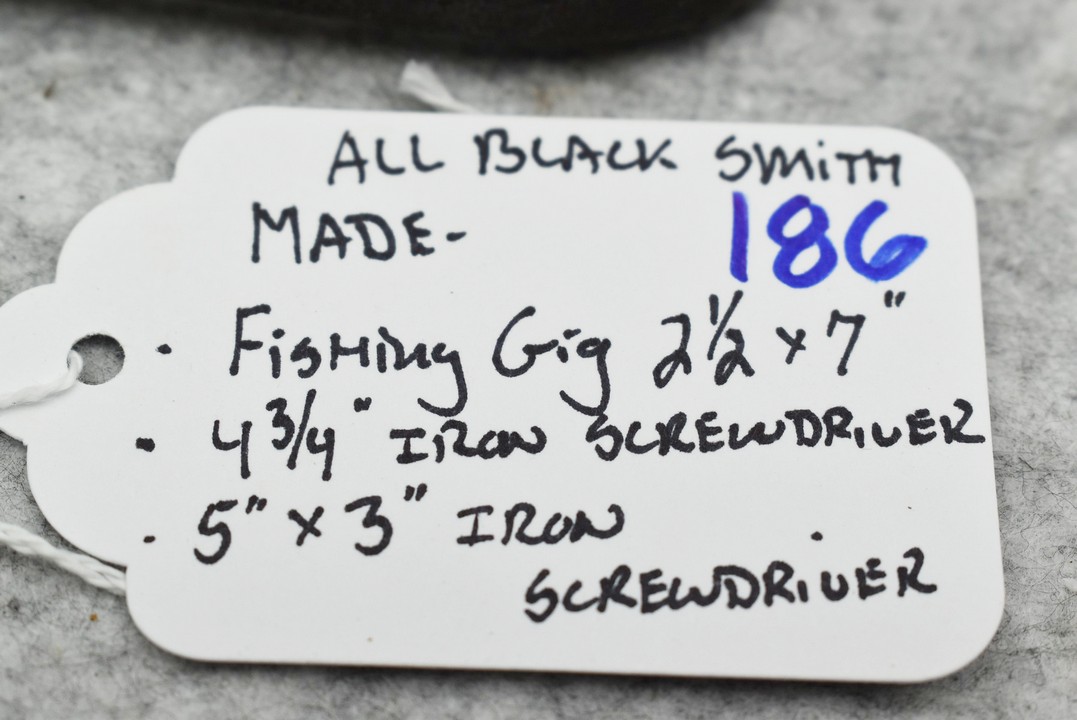 ALL BLACK SMITH
MADE-
186
· Fishing Gig 2 1/2 x 7"
· 4 3/4" IRON SCREWDRIVER
· 5" x 3" IRON
SCREWDRIVER